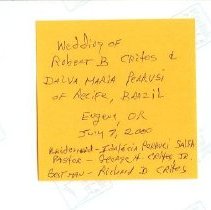 Wedding of
Robert B Crites &
Dalva Maria Perrusi
of Recife, Brazil
Eugene, OR
July 7, 2000
Perrusi Salsa
Pastor - George H Crites Jr.
Best man - Richard D Crites